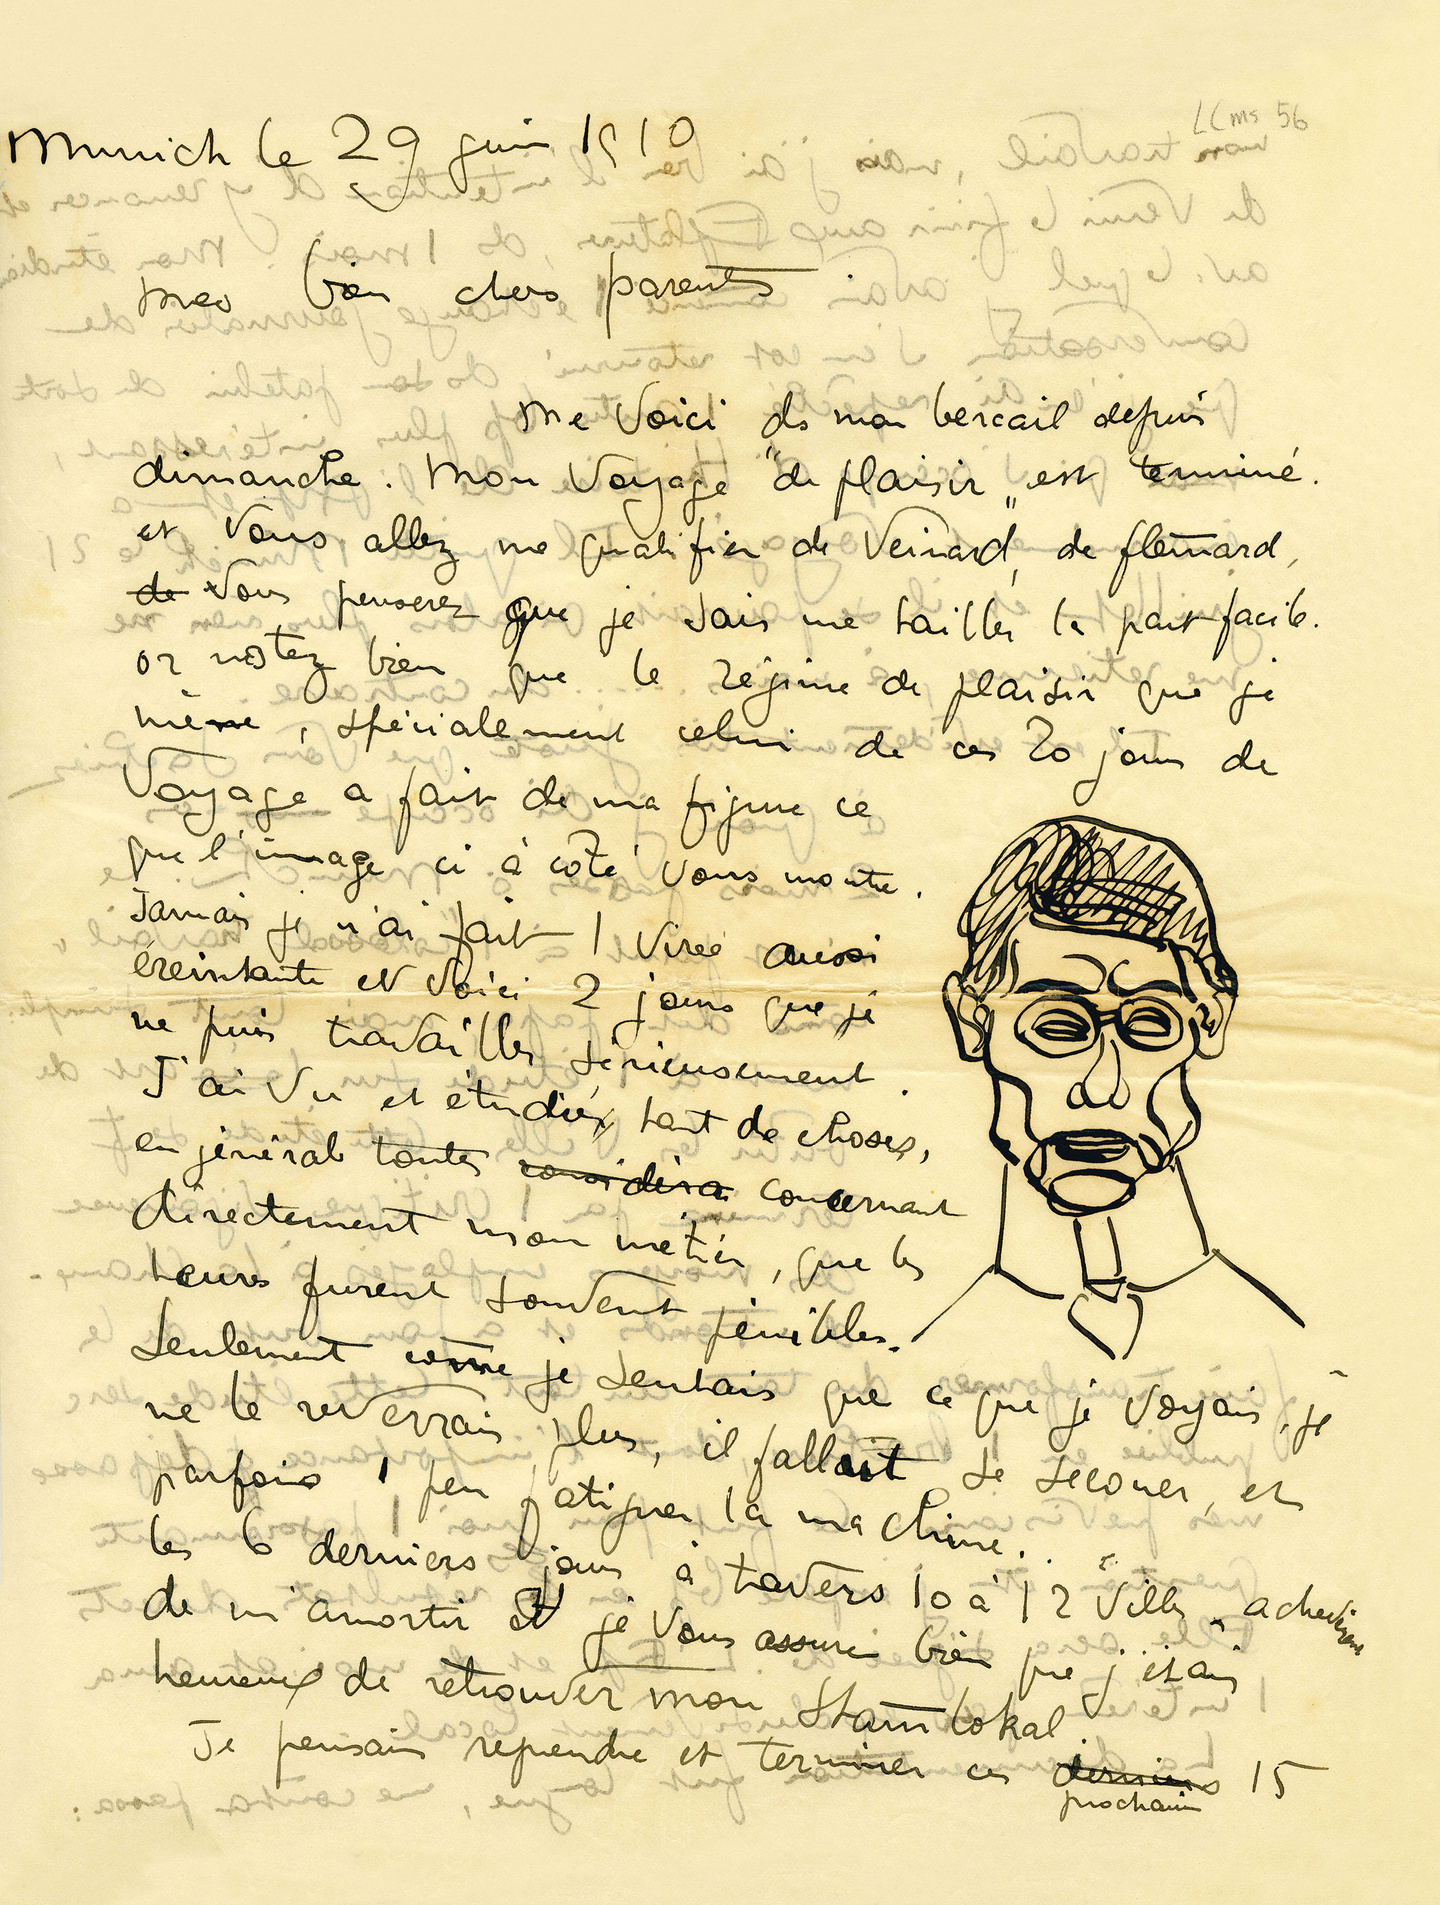 LC ms 56
Munich le 29 juin 1910
Mes bien chers parents
Me voici ds mon bercail depuis
dimanche. Mon voyage "de plaisir" est terminé.
et vous allez me qualifier de veinard, de flem̄ard,
de vous penserez que je sais me tailler la part facile.
or notez bien que le régime de plaisir que je
mène, spécialement celui de ces 20 jours de
voyage a fait de ma figure ce
que l'image ci à côté vous montre.
Jamais je n'ai fait 1 virée aussi
éreintante et voici 2 jours que je
ne puis travailler sérieusement.
J'ai vu et étudié tant de choses,
en général toutes considéra concernant
directement mon métier, que les
heures furent souvent pénibles.
Seulement com̄e je sentais que ce que je voyais, je
ne le reverrais plus, il fallait se secouer, et
parfois 1 peu fatiguer la machine.
les 6 derniers jours à travers 10 à 12 villes achevèrent
de m'amortir et je vous assure bien que j'étais
heureux de retrouver mon Stam̄lokal
Je pensais reprendre et terminer ces derniers 15
prochains